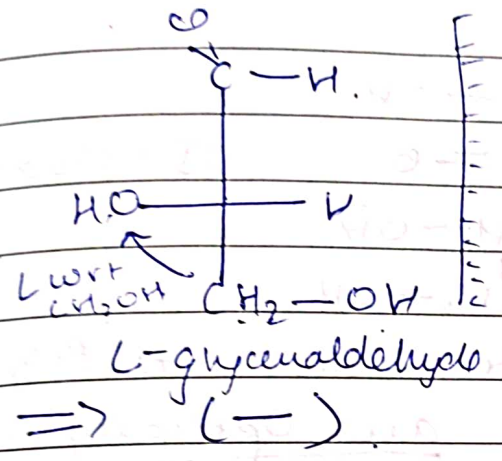 O
C — H.
H.O — H
L wrt
CH₂OH
CH₂ — OH
L-glyceraldehyde
=> (—).